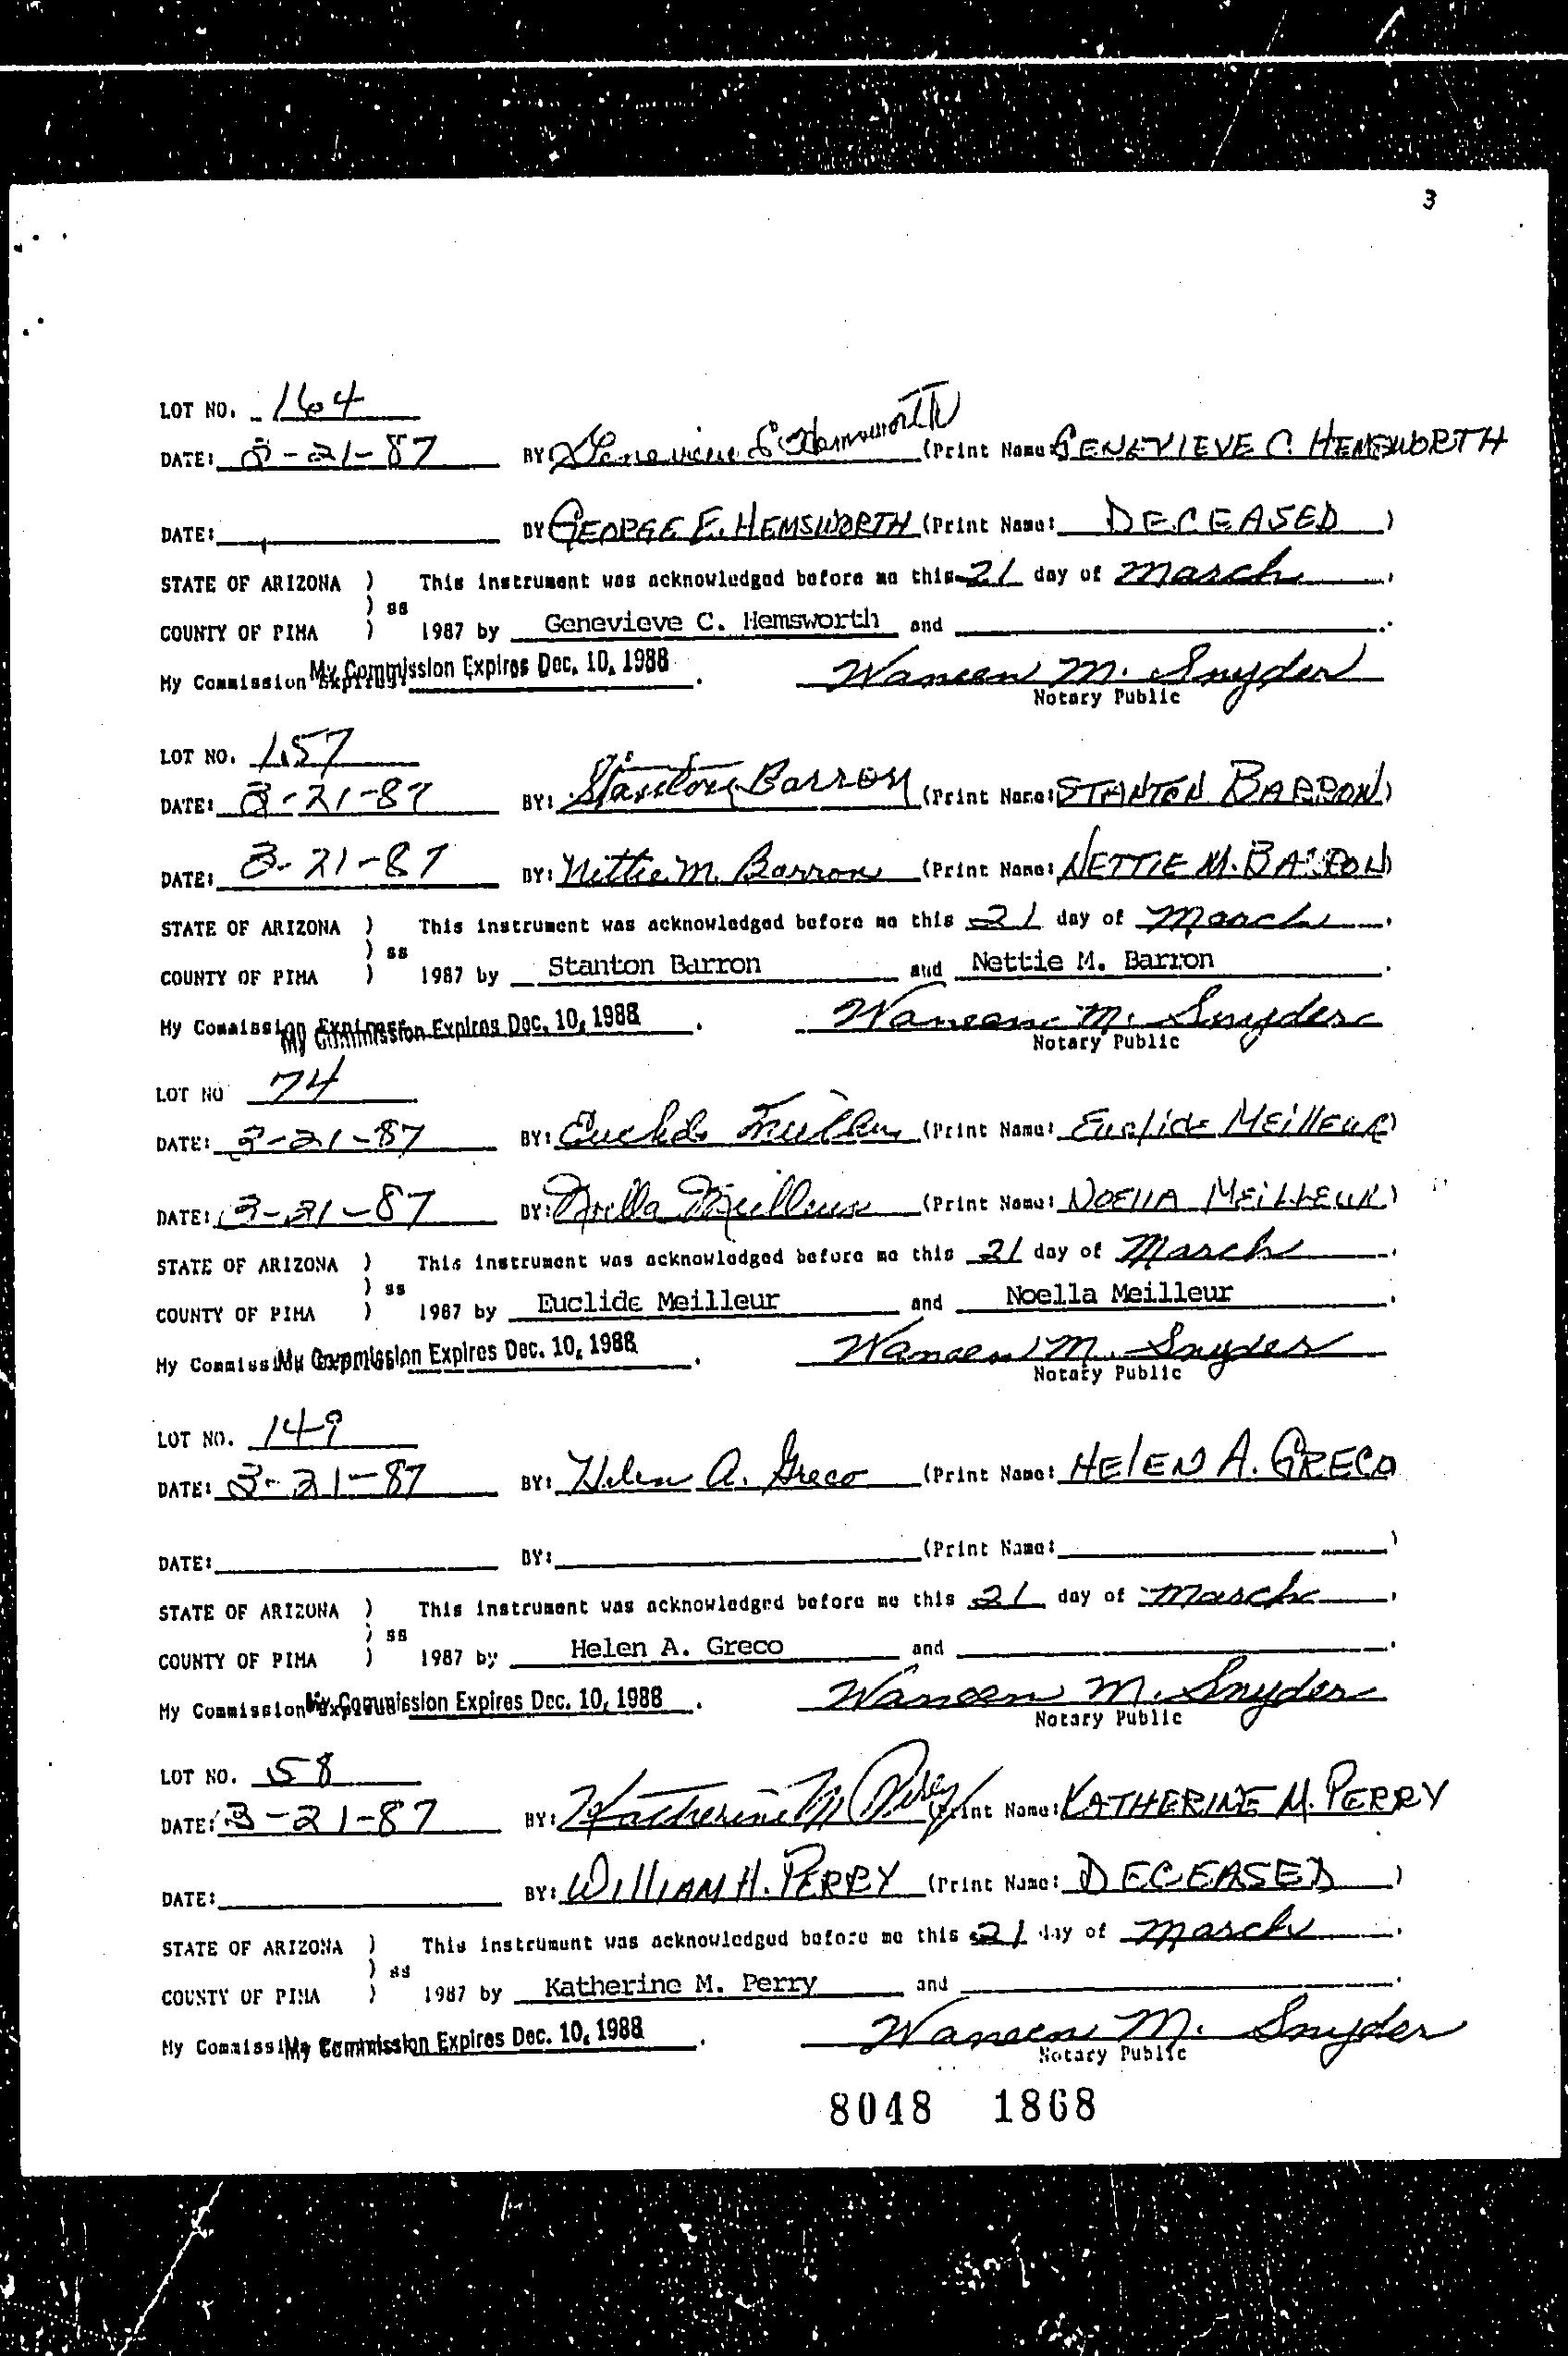 3
LOT NO. 164
DATE: 3-21-87 BY Genevieve C Hemsworth (Print Name: GENEVIEVE C. HEMSWORTH
DATE: BY GEORGE E. HEMSWORTH (Print Name: DECEASED )
STATE OF ARIZONA ) This instrument was acknowledged before me this 21 day of March.
) ss
COUNTY OF PIMA ) 1987 by Genevieve C. Hemsworth and .
My Commission Expires: My Commission Expires Dec. 10, 1988 . Waneen M. Snyder
Notary Public
LOT NO. 157
DATE: 3-21-87 BY: Stanton Barron (Print Name: STANTON BARRON)
DATE: 3-21-87 BY: Nettie M. Barron (Print Name: NETTIE M. BARRON)
STATE OF ARIZONA ) This instrument was acknowledged before me this 21 day of March.
) ss
COUNTY OF PIMA ) 1987 by Stanton Barron and Nettie M. Barron .
My Commission Expires: My Commission Expires Dec. 10, 1988 . Waneen M. Snyder
Notary Public
LOT NO 74
DATE: 3-21-87 BY: Euclide Meilleur (Print Name: Euclide MEillEUR)
DATE: 3-21-87 BY: Noella Meilleur (Print Name: NOEllA MEiLLEUR)
STATE OF ARIZONA ) This instrument was acknowledged before me this 21 day of March.
) ss
COUNTY OF PIMA ) 1987 by Euclide Meilleur and Noella Meilleur .
My Commission Expires: My Commission Expires Dec. 10, 1988 . Waneen M. Snyder
Notary Public
LOT NO. 149
DATE: 3-21-87 BY: Helen A. Greco (Print Name: HElEN A. GRECO
DATE: BY: (Print Name: )
STATE OF ARIZONA ) This instrument was acknowledged before me this 21 day of March.
) ss
COUNTY OF PIMA ) 1987 by Helen A. Greco and .
My Commission Expires: My Commission Expires Dec. 10, 1988 . Waneen M. Snyder
Notary Public
LOT NO. 58
DATE: 3-21-87 BY: Katherine M Perry (Print Name: KATHERINE M. PERRY
DATE: BY: WIllIAM H. PERRY (Print Name: DECEASED )
STATE OF ARIZONA ) This instrument was acknowledged before me this 21 day of March.
) ss
COUNTY OF PIMA ) 1987 by Katherine M. Perry and .
My Commission Expires: My Commission Expires Dec. 10, 1988 . Waneen M. Snyder
Notary Public
8048 1868